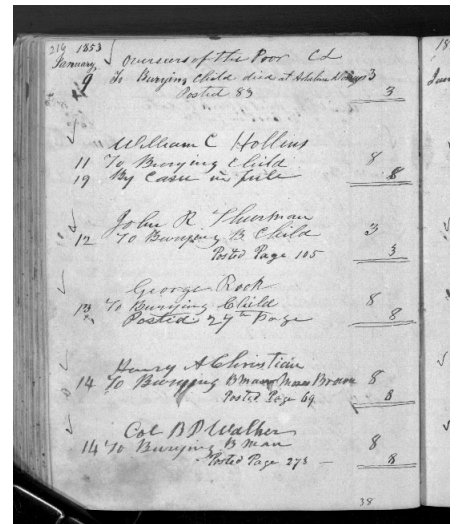 214 1853
January, Overseers of the Poor
9 To Burying Child died at 3
Posted 83 3
William C Hollins
11 To Burying Child 8
19 By Cash in full 8
John R Thurman
12 To Burying B Child 3
Posted Page 105 3
George Rock
13 To Burying Child 8
Posted 27th Page 8
Henry A Christian
14 To Burying B man Moses Brown 8
Posted Page 69 8
Col B D Walker
14 To Burying B man 8
Posted Page 273 8
38